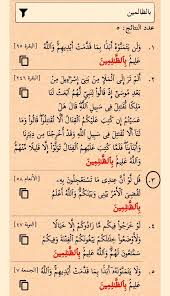 بالظالمين
عدد النتائج: ٥
١. وَلَن يَتَمَنَّوْهُ أَبَدًا بِمَا قَدَّمَتْ أَيْدِيهِمْ وَاللَّهُ [البقرة ٩٥]
عَلِيمٌ بِالظَّالِمِينَ
٢. أَلَمْ تَرَ إِلَى الْمَلَإِ مِن بَنِي إِسْرَائِيلَ مِن [البقرة ٢٤٦]
بَعْدِ مُوسَىٰ إِذْ قَالُوا لِنَبِيٍّ لَّهُمُ ابْعَثْ لَنَا
مَلِكًا نُّقَاتِلْ فِي سَبِيلِ اللَّهِ قَالَ هَلْ عَسَيْتُمْ
إِن كُتِبَ عَلَيْكُمُ الْقِتَالُ أَلَّا تُقَاتِلُوا قَالُوا وَمَا
لَنَا أَلَّا نُقَاتِلَ فِي سَبِيلِ اللَّهِ وَقَدْ أُخْرِجْنَا مِن
دِيَارِنَا وَأَبْنَائِنَا فَلَمَّا كُتِبَ عَلَيْهِمُ الْقِتَالُ تَوَلَّوْا إِلَّا قَلِيلًا مِّنْهُمْ
وَاللَّهُ عَلِيمٌ بِالظَّالِمِينَ
٣. قُل لَّوْ أَنَّ عِندِي مَا تَسْتَعْجِلُونَ بِهِ [الأنعام ٥٨]
لَقُضِيَ الْأَمْرُ بَيْنِي وَبَيْنَكُمْ وَاللَّهُ أَعْلَمُ
بِالظَّالِمِينَ
٤. لَوْ خَرَجُوا فِيكُم مَّا زَادُوكُمْ إِلَّا خَبَالًا [التوبة ٤٧]
وَلَأَوْضَعُوا خِلَالَكُمْ يَبْغُونَكُمُ الْفِتْنَةَ وَفِيكُمْ
سَمَّاعُونَ لَهُمْ وَاللَّهُ عَلِيمٌ بِالظَّالِمِينَ
٥. وَلَا يَتَمَنَّوْنَهُ أَبَدًا بِمَا قَدَّمَتْ أَيْدِيهِمْ وَاللَّهُ [الجمعة ٧]
عَلِيمٌ بِالظَّالِمِينَ